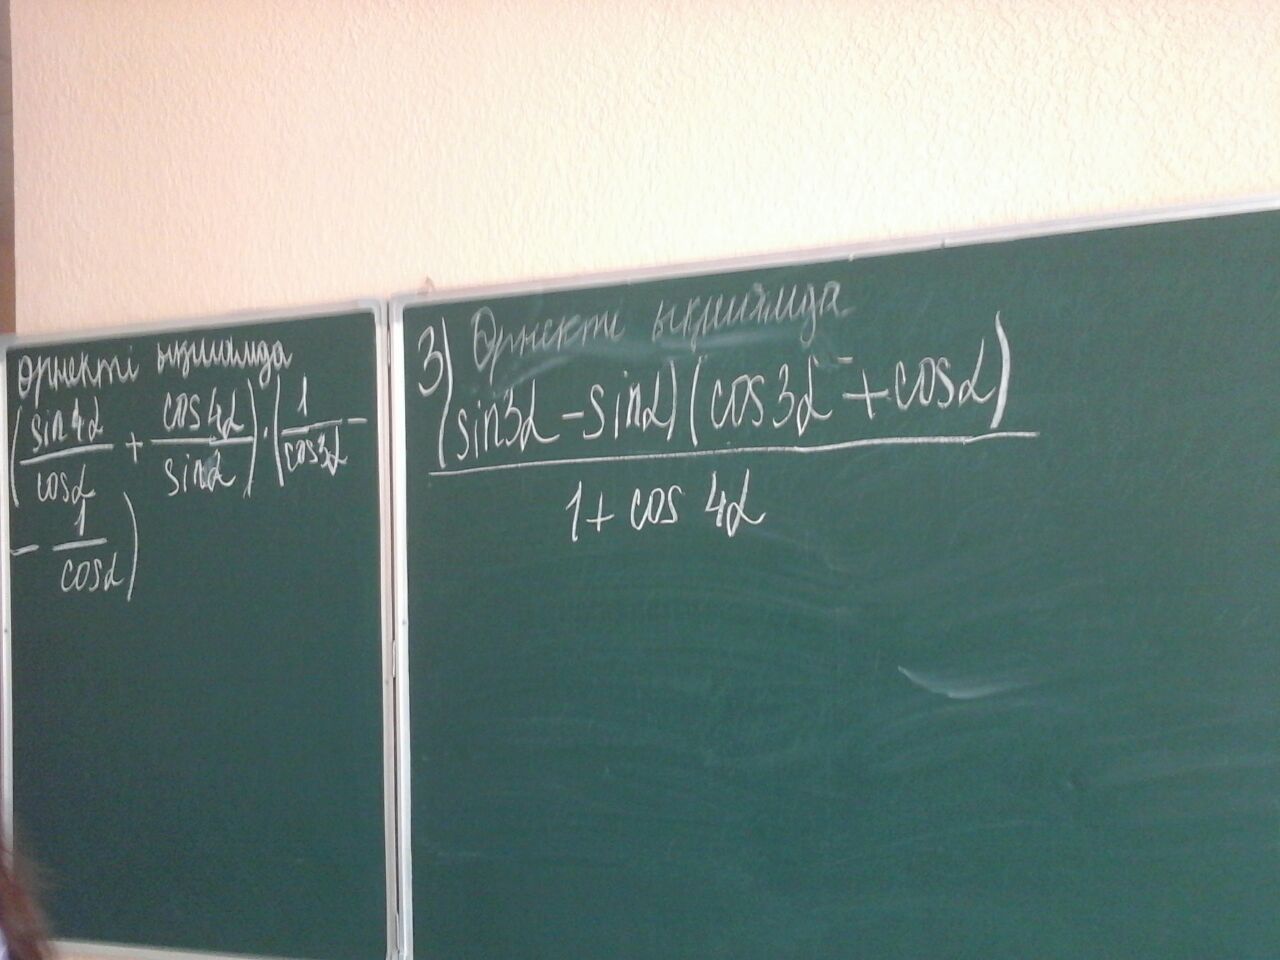 өрнекті ықшамда
(sin4α/cosα + cos4α/sinα) · (1/cos3α −
− 1/cosα)
3) Өрнекті ықшамда
(sin3α − sinα)(cos3α + cosα)
1 + cos 4α